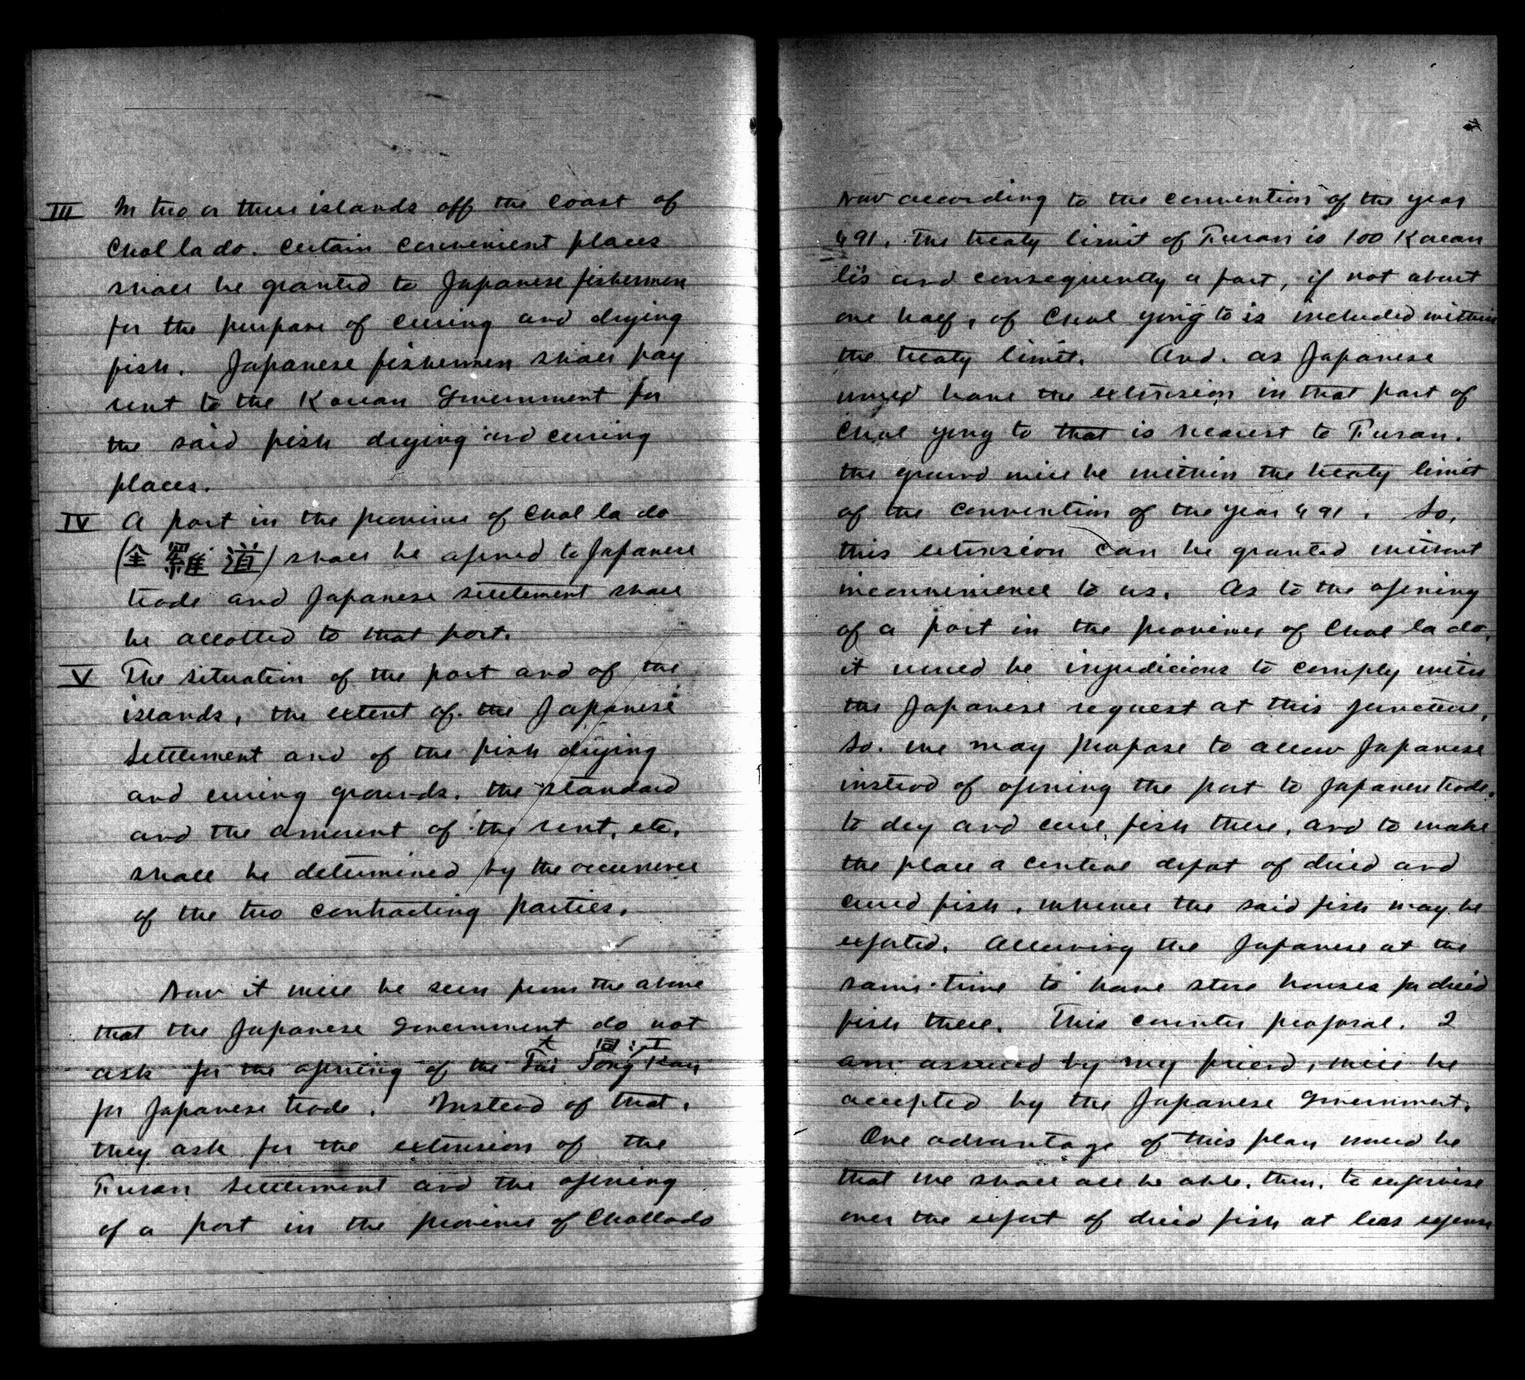 III In two or three islands off the coast of
Chol la do. certain convenient places
shall be granted to Japanese fishermen
for the purpose of curing and drying
fish. Japanese fishermen shall pay
rent to the Korean Government for
the said fish drying and curing
places.
IV A port in the province of Chol la do
(全羅道) shall be opened to Japanese
trade and Japanese settlement shall
be allotted to that port.
V The situation of the port and of the
islands, the extent of the Japanese
settlement and of the fish drying
and curing grounds. the standard
and the amount of the rent, etc.
shall be determined by the
of the two contracting parties.
Now it will be seen from the above
that the Japanese Government do not
大 同 江
ask for the opening of the Tai Tong Kan
for Japanese trade. Instead of that,
they ask for the extension of the
Fusan settlement and the opening
of a port in the province of Chollado
Now according to the convention of the year
491. The treaty limit of Fusan is 100 Korean
li's and consequently a part, if not about
one half, of Chol yong to is included within
the treaty limit. And. as Japanese
would have the extension in that part of
Chol yong to that is nearest to Fusan.
the ground will be within the treaty limit
of the convention of the year 491. So,
this extension can be granted without
inconvenience to us. As to the opening
of a port in the province of Chol la do,
it would be injudicious to comply with
the Japanese request at this juncture,
So. we may propose to allow Japanese
instead of opening the port to Japanese trade.
to dry and cure fish there, and to make
the place a central depot of dried and
cured fish, whence the said fish may be
exported. Allowing the Japanese at the
same time to have store houses for dried
fish there. This counter proposal. I
am assured by my friend, will be
accepted by the Japanese Government.
One advantage of this plan would be
that we shall all be able. then. to supervise
over the export of dried fish at less expense